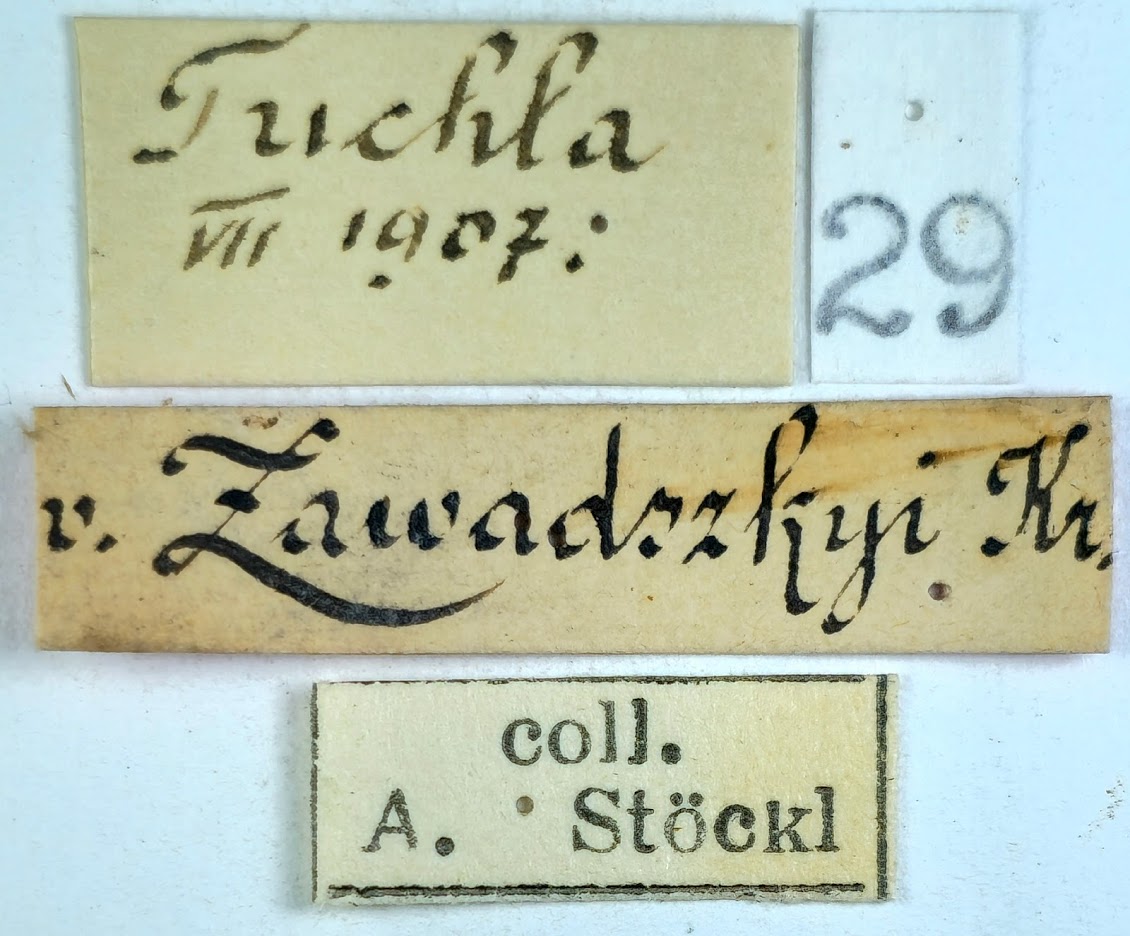 Tuchla
VII 1907.
29
v. Zawadszkyi Kr.
coll.
A. Stöckl